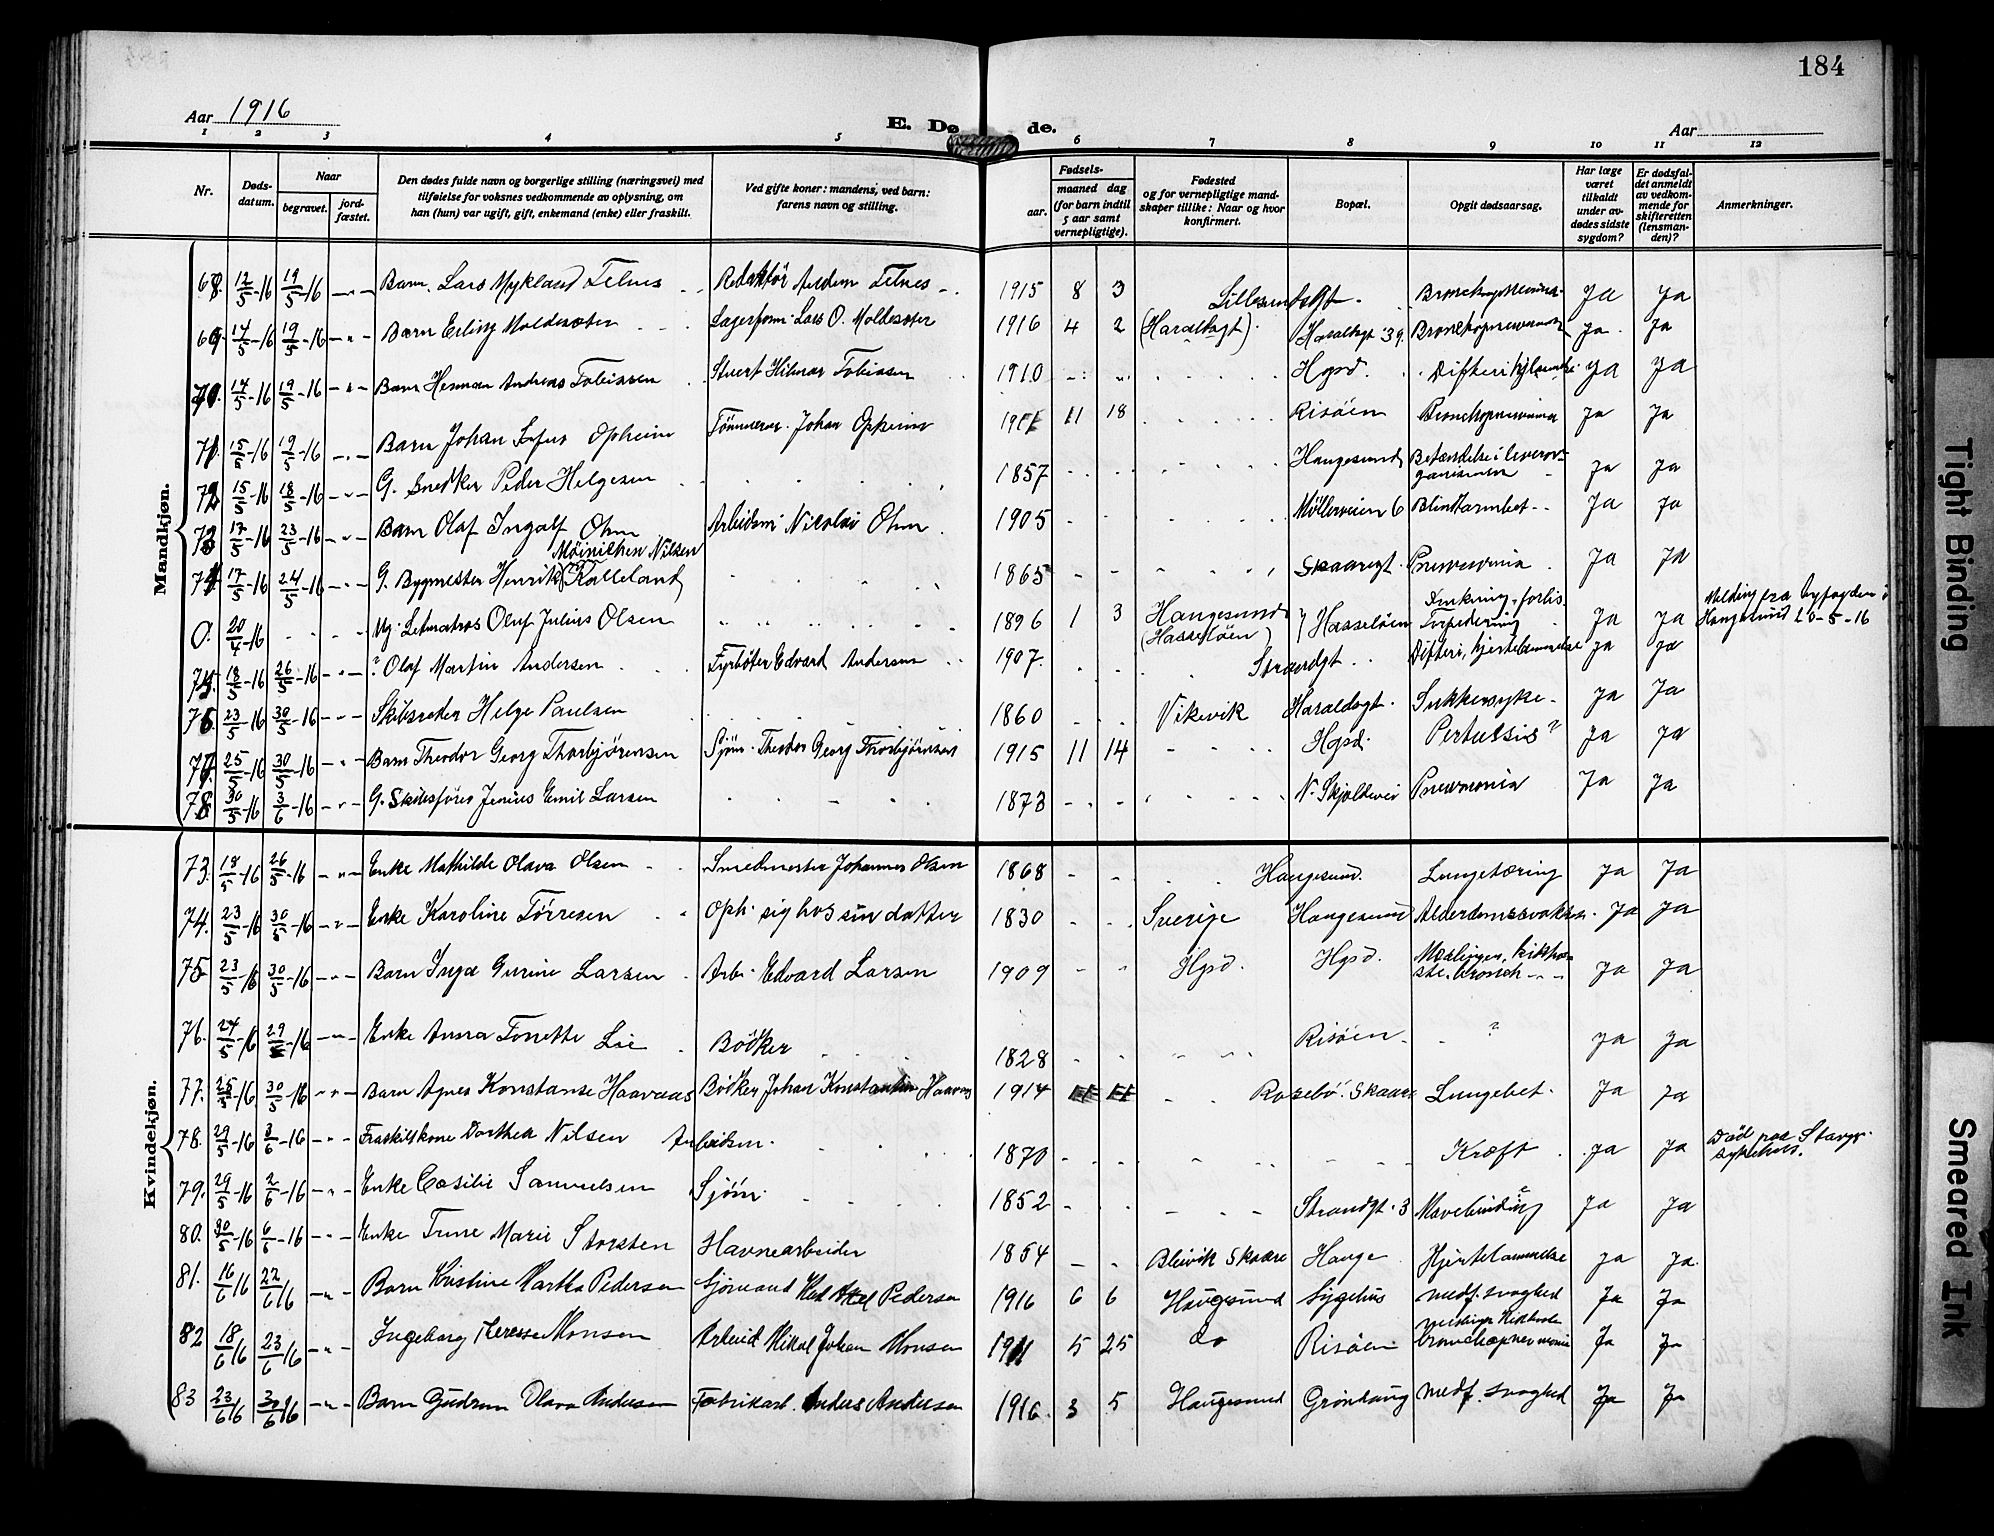 184
Aar 1916
E. Dø de.
Aar
1 2 3 4 5 6 7 8 9 10 11 12
Nr.
Døds-datum.
Naar
begravet.
jord-fæstet.
Den dødes fulde navn og borgerlige stilling (næringsvei) med
tilføielse for voksnes vedkommende av oplysning, om
han (hun) var ugift, gift, enkemand (enke) eller fraskilt.
Ved gifte koner: mandens, ved barn:
farens navn og stilling.
Fødsels-
aar.
maaned dag
(for barn indtil
5 aar samt
vernepligtige).
Fødested
og for vernepligtige mand-
skaper tillike: Naar og hvor
konfirmert.
Bopæl.
Opgit dødsaarsag.
Har læge
været
tilkaldt
under av-
dødes sidste
sygdom?
Er dødsfal-
det anmeldt
av vedkom-
mende for
skifteretten
(lensman-
den)?
Anmerkninger.
Mandkjøn.
68. 12/5-16 19/5-16 -"- Barn. Lars Mykland Telnes Redaktör Telnes 1915 8 3 Lillesundsgt. Ja Ja
69. 14/5-16 19/5-16 -"- Barn Erling Moldesæter Lagerform. Lars O. Moldesæter 1916 4 2 (Haraldsgt). Haraldsgt 39. Bronchopneumonia Ja Ja
70. 14/5-16 19/5-16 -"- Barn Herman Andreas Tobiasen Stuert Hilmar Tobiasen 1910 Hgsd. Difteri Ja Ja
71. 15/5-16 19/5-16 -"- Barn Johan Opheim Johan Opheim 11 18 Risöen Bronchopneumonia Ja Ja
72. 15/5-16 18/5-16 -"- G. Snedker Peder Helgesen 1857 Haugesund Betændelse i leveror-
ganismen Ja Ja
73. 17/5-16 23/5-16 -"- Barn Olaf Ingolf Ohm Arbeidsm. Nicolai Ohm 1905 Møllerveien 6 Blindtarmbet. Ja Ja
Nilsen
74. 17/5-16 24/5-16 -"- G. Bygmester Henrik (Kalleland) 1865 Skaaregt. Pneumonia Ja Ja
0. 20/4-16 Ug. Letmatros Oluf Julius Olsen 1896 1 3 Haugesund
(Hasseløen) Hasseløen forlis.
Torpedering Ja Ja Melding fra byfogden i
Haugesund 20-5-16
75. 18/5-16 26/5-16 -"- ? Olaf Martin Andersen Fyrböter Edvard Andersen 1907. Strandgt. Difteri, hjertelammelse Ja Ja
76. 23/5-16 30/5-16 -"- Skibsreder Helge Paulsen 1860 Vikevik Haraldsgt. Sukkersyke Ja Ja
77. 25/5-16 30/5-16 -"- Barn Theodor Georg Thorbjörensen Sjöm. Theodor Georg Thorbjörnsen 1915 11 14 Hgsd. Pertussis? Ja Ja
78. 30/5-16 3/6-16 -"- G. Skibsfører Jenius Emil Larsen 1873 N. Skjoldevei Pneumonia Ja Ja
Kvindekjøn.
73. 18/5-16 26/5-16 -"- Enke Mathilde Olava Olsen Smedmester Johannes Olsen 1868 Haugesund. Lungetæring Ja Ja
74. 23/5-16 30/5-16 -"- Enke Karoline Törresen Oph. sig hos sin datter 1830 Sverige Haugesund Alderdomssvakhet. Ja Ja
75 23/5-16 30/5-16 -"- Barn Inga Gurine Larsen Arb. Edvard Larsen 1909 Hgsd. Hgsd. Meslinger, kikho-
ste. bronch Ja Ja
76. 24/5-16 29/5-16 -"- Enke Anna Tonette Lie Bödker 1828 Risöen ? Ja Ja
77. 25/5-16 30/5-16 -"- Barn Agnes Konstanse Haavaas Bödker Johan Konstantin Haavaas 1914 Rosebö. Skaare Lungebet. Ja Ja
78. 29/5-16 3/6-16 -"- Fraskilt kone Dorthea Nilsen Arbeidsm. 1870 Kræft Ja Ja Död paa Stavgr.
sykehus.
79. 29/5-16 2/6-16 -"- Enke Cæsilie Samuelsen Sjöm. 1852 Strandgt. 3 Mave Ja Ja
80. 30/5-16 6/6-16 -"- Enke Trine Marie Storsten Havnearbeider 1854 Bleivik Skaare Hauge Hjertelammelse Ja Ja
81. 16/6 16 22/6 16 -"- Barn Kristine Martha Pedersen Sjömand Axel Pedersen 1916 6 6 Haugesund Sygehus medf. svaghed Ja Ja
82 18/6 16 23/6 16 -"- Ingeborg Terese Monsen Arbeid Mikal Johan Monsen 1911 5 25 do Risöen meslinger Kikhoste
bronchopneumonie Ja Ja
83 23/6 16 30/6 16 -"- Barn Gudrun Olava Andersen Fabrikarb. Anders Andersen 1916. 3 5 Haugesund Grönhaug medf. svaghed Ja Ja
Tight Binding
Smeared Ink